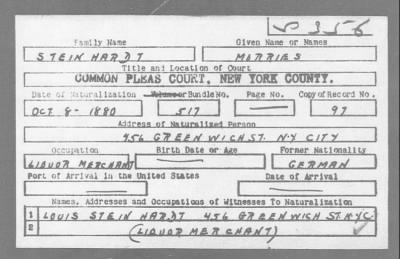 S 356
Family Name Given Name or Names
STEIN HARDT MORRIES
Title and Location of Court
COMMON PLEAS COURT, NEW YORK COUNTY.
Date of Naturalization Volume or Bundle No. Page No. Copy of Record No.
OCT 8 - 1880 517 97
Address of Naturalized Person
456 GREENWICH ST. N.Y CITY
Occupation Birth Date or Age Former Nationality
LIQUOR MERCHANT GERMAN
Port of Arrival in the United States Date of Arrival
Names, Addresses and Occupations of Witnesses To Naturalization
1 LOUIS STEIN HARDT 456 GREENWICH ST. N.Y.C.
2 (LIQUOR MERCHANT)